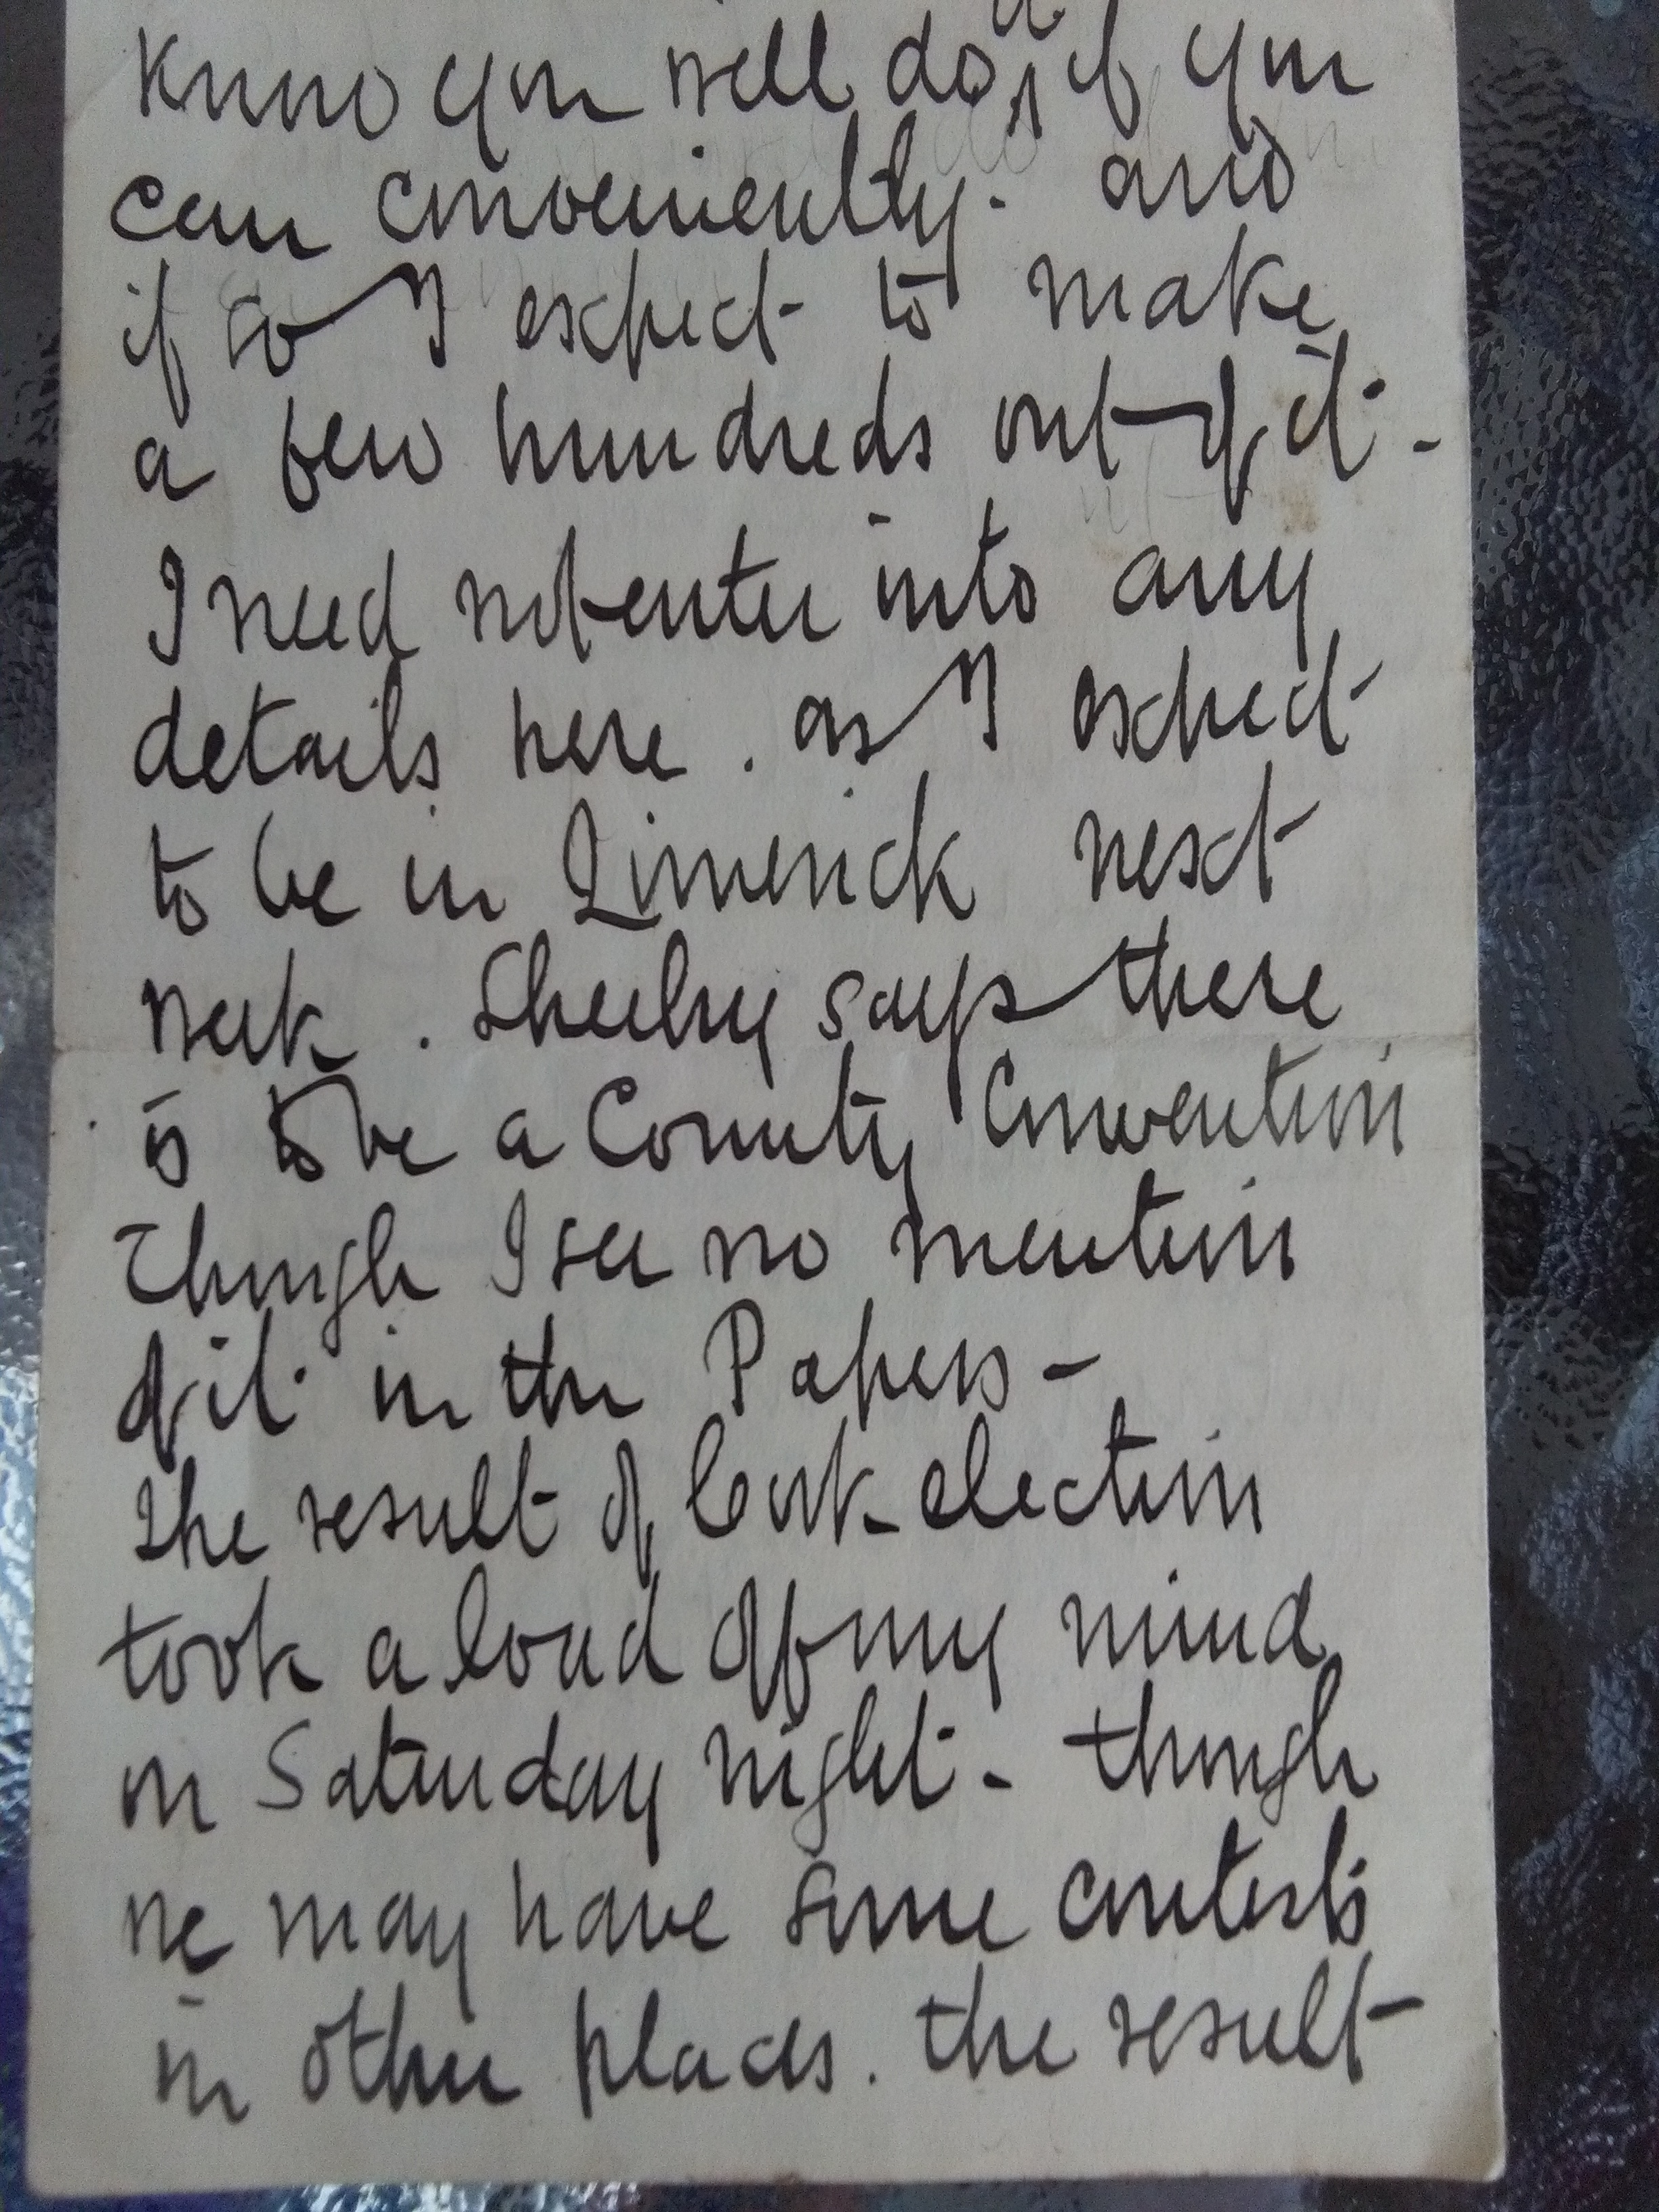 know you will do it, if you
can conveniently. and
if so I expect to make
a few hundreds out of it -
I need not enter into any
details here. as I expect
to be in Limerick next
week. Sheehy says there
is to be a County Convention
though I see no mention
of it in the Papers -
The result of Cork election
took a load off my mind
on Saturday night - though
we may have some contests
in other places. the result